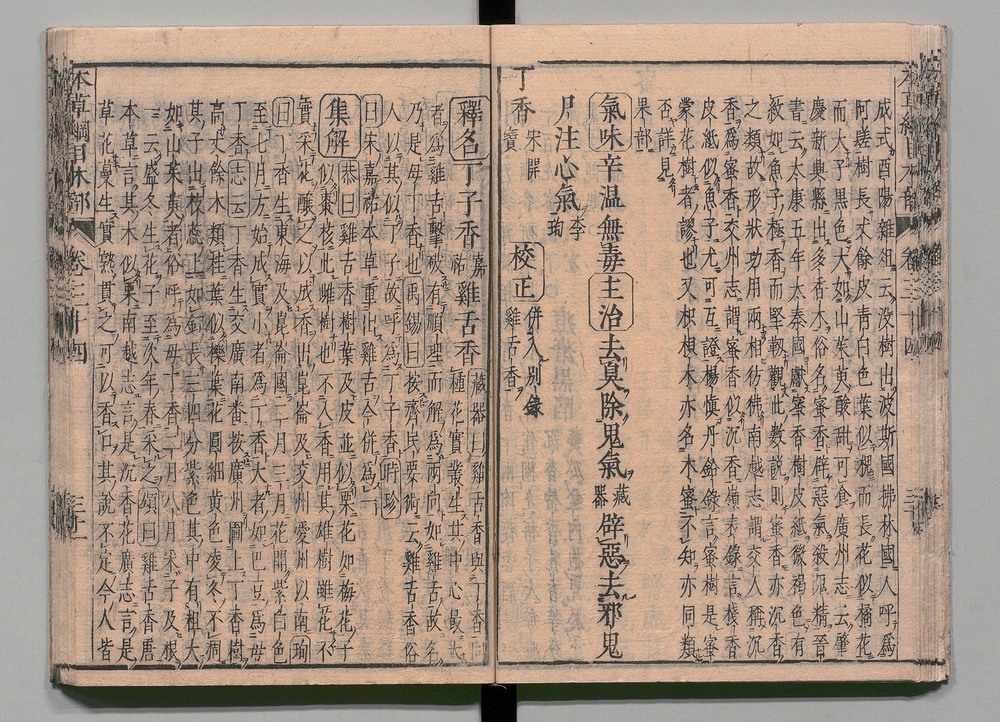 成式酉陽雜俎云没樹出波斯國拂林國人呼爲
阿䠡樹長丈餘皮青白色葉似槐而長花似橘花
而大子黒色大如山茱萸酸甜可食廣州志云肇
慶新興縣出多香木俗名蜜香辟惡氣殺鬼精晉
書云太康五年大秦國獻蜜香樹皮紙微褐色有
紋如魚子極香而堅靭觀此數說則蜜香亦沉香
之類故形狀功用兩相彷彿南越志謂交人稱沉
香爲蜜香交州志謂蜜香似沉香嶺表錄言棧香
皮紙似魚子尤可互證楊慎丹鉛錄言蜜樹是蜜
蒙花樹者謬也又枳椇木亦名木蜜不知亦同類
否詳見
果部
氣味辛温無毒主治去臭除鬼氣藏器辟惡去邪鬼
尸注心氣李珣
丁香宋開寶校正併入別錄雞舌香
釋名丁子香嘉祐雞舌香藏器曰雞舌香與丁香同
種花實叢生其中心最大
者爲雞舌擊破有順理而解爲兩向如雞舌故名
乃是母丁香也禹錫曰按齊民要術云雞舌香俗
人以其似丁子故呼爲丁子香時珍
曰宋嘉祐本草重出雞舌今併爲一
集解恭曰雞舌香樹葉及皮並似栗花如梅花子
似棗核此雌樹也不入香用其雄樹雖花不
實采花釀之以成香出崑崙及交州愛州以南珣
曰丁香生東海及崑崙國二月三月花開紫白色
至七月方始成實小者爲丁香大者如巴豆爲母
丁香志云丁香生交廣南番按廣州圖上丁香樹
高丈餘木類桂葉似櫟葉花圓細黄色凌冬不凋
其子出枝蕊上如釘長三四分紫色其中有粗大
如山茱萸者俗呼爲母丁香二月八月采子及根
一云盛冬生花子至次年春采之頌曰雞舌香唐
本草言其木似栗南越志言是沉香花廣志言是
草花蔓生實熟貫之可以香口其說不定今人皆
本草綱目木部
卷三十四